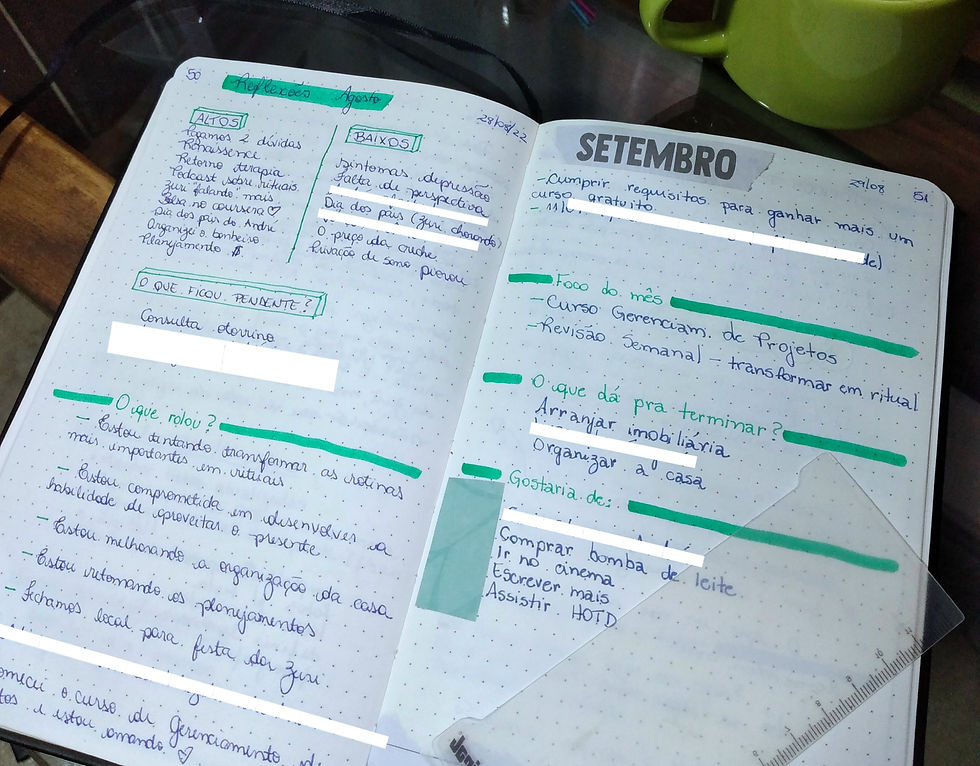 50
Reflexões Agosto
28/08/22
ALTOS
Pagamos 2 dívidas
Renaissence
Retorno terapia
Podcast sobre rituais
Zuri falando mais
no coursera ♡
Dia dos pais do André
Organizei o banheiro
Planejamento $
BAIXOS
Sintomas depressão
Falta de perspectiva
Dia dos pais (Zuri chorando)
O preço da creche
Privação de sono piorou
O QUE FICOU PENDENTE?
Consulta otorrino
O que rolou?
- Estou tentando transformar as rotinas
mais importantes em rituais
- Estou comprometida em desenvolver a
habilidade de aproveitar o presente
- Estou melhorando a organização da casa
- Estou retomando os planejamentos
- Fechamos local para festa da Zuri
omecei o curso de Gerenciamento de
tos e estou amando. ♡
SETEMBRO
29/08
51
- Cumprir requisitos para ganhar mais um
curso gratuito
de)
Foco do mês
- Curso Gerenciam. de Projetos
- Revisão Semanal - transformar em ritual
O que dá pra terminar?
Arranjar imobiliária
Organizar a casa
Gostaria de:
Comprar bomba de leite
Ir no cinema
Escrever mais
Assistir HOTD